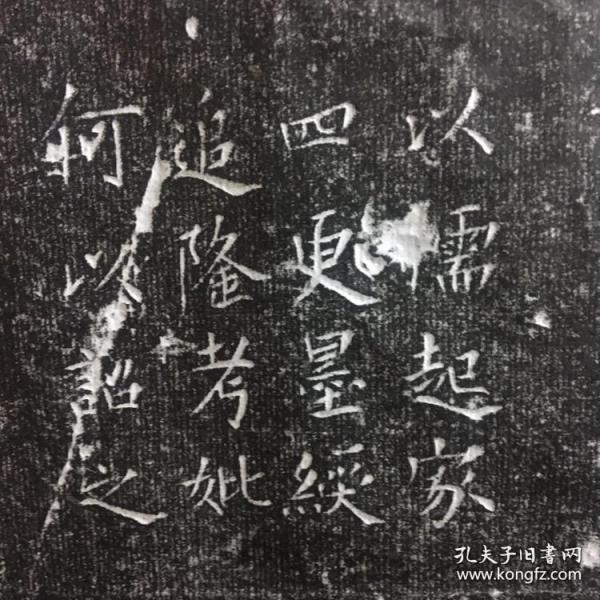 以儒起家
四更墨綬
追隆考妣
何以詔之
孔夫子旧書网
www.kongfz.com